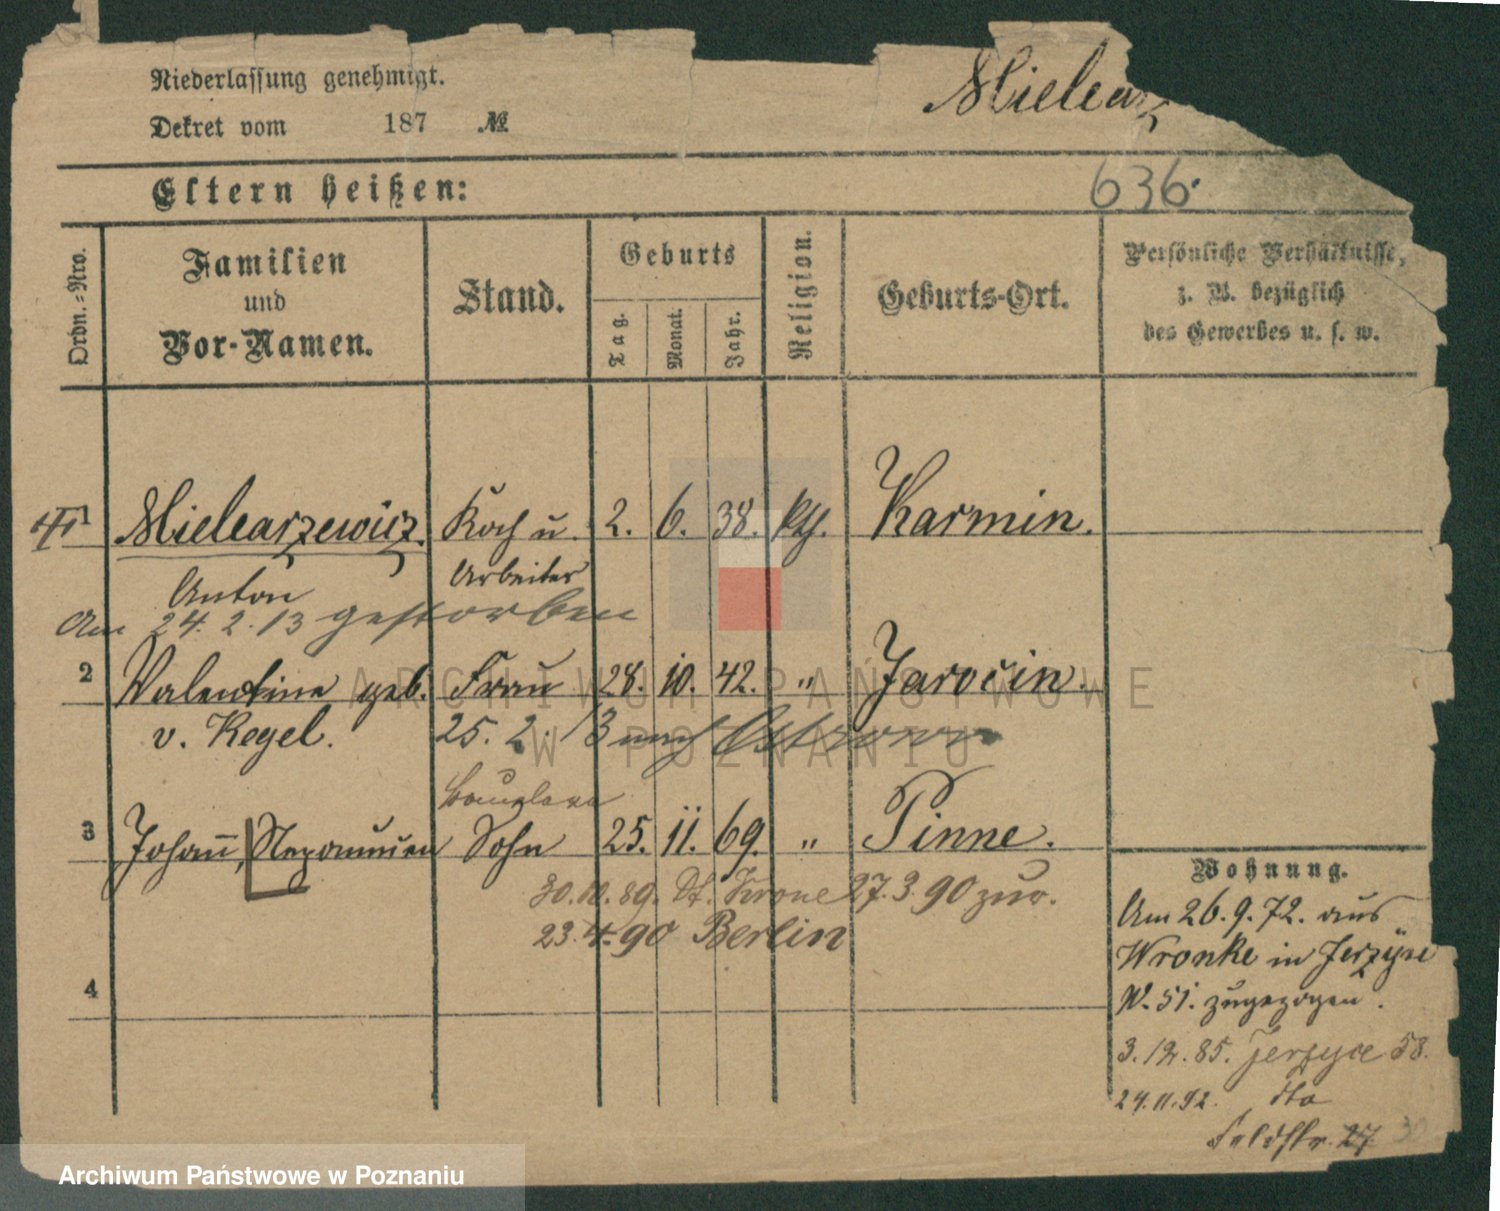 Niederlassung genehmigt.
Dekret vom 187 №
Mielcarz
Eltern heißen:
636.
Ordn.-Nro.
Familien
und
Vor-Namen.
Stand.
Geburts
Tag.
Monat.
Jahr.
Religion.
Geburts-Ort.
Persönliche Verhältnisse,
z. B. bezüglich
des Gewerbes u. s. w.
1 Mielcarzewicz Koch u. 2. 6. 38. kth. Karmin.
Anton Arbeiter
Am 24. 2. 13 gestorben
2 Valentine geb. Frau 28. 10. 42. " Jarocin.
v. Kegel. 25. 2. 13 nach Ostrowo
3 Johann, Sohn 25. 11. 69. " Pinne.
30. 10. 89. Dt. Krone 27. 3. 90 zur.
23. 4. 90 Berlin
4
Wohnung.
Am 26. 9. 72. aus
Wronke in Jerzyce
N. 51. zugezogen.
3. 12. 85. Jerzyce 58.
24. 11. 92. dto
Feldstr. 27 30
ARCHIWUM PAŃSTWOWE
W POZNANIU
Archiwum Państwowe w Poznaniu